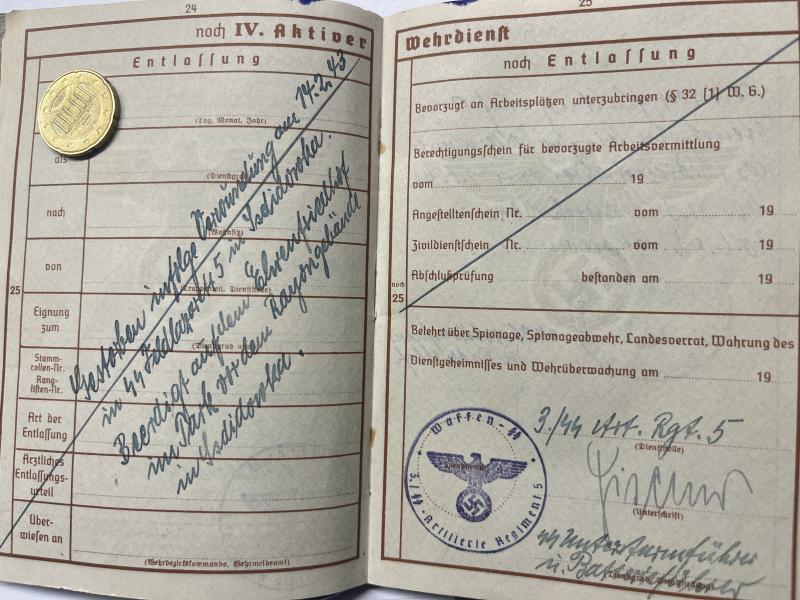 24
noch IV. Aktiver
Entlassung
(Tag, Monat, Jahr)
als
(Dienstgrad)
nach
(Wohnsitz)
von
(Truppenteil, Dienststelle)
25
Eignung
zum
(Dienstgrad usw.)
Stamm-
rollen-Nr.
Rang-
listen-Nr.
Art der
Entlassung
Ärztliches
Entlassungs-
urteil
Über-
wiesen an
(Wehrbezirkskommando, Wehrmeldeamt)
Gestorben infolge Verwundung am 14.2.43
in SS Feldlazarett 5 in Isidorowka.
Beerdigt auf dem Ehrenfriedhof
im Park vor dem Rayongebäude
in Isidorowka.
25
Wehrdienst
noch Entlassung
Bevorzugt an Arbeitsplätzen unterzubringen (§ 32 [1] W. G.)
Berechtigungsschein für bevorzugte Arbeitsvermittlung
vom 19
Angestelltenschein Nr. vom 19
Zivildienstschein Nr. vom 19
noch
25
Abschlußprüfung bestanden am 19
Belehrt über Spionage, Spionageabwehr, Landesverrat, Wahrung des
Dienstgeheimnisses und Wehrüberwachung am 19
Waffen-SS
3./SS-Artillerie Regiment 5
3./SS Art. Rgt. 5
(Dienststelle)
(Unterschrift)
SS Untersturmführer
u. Batterieführer